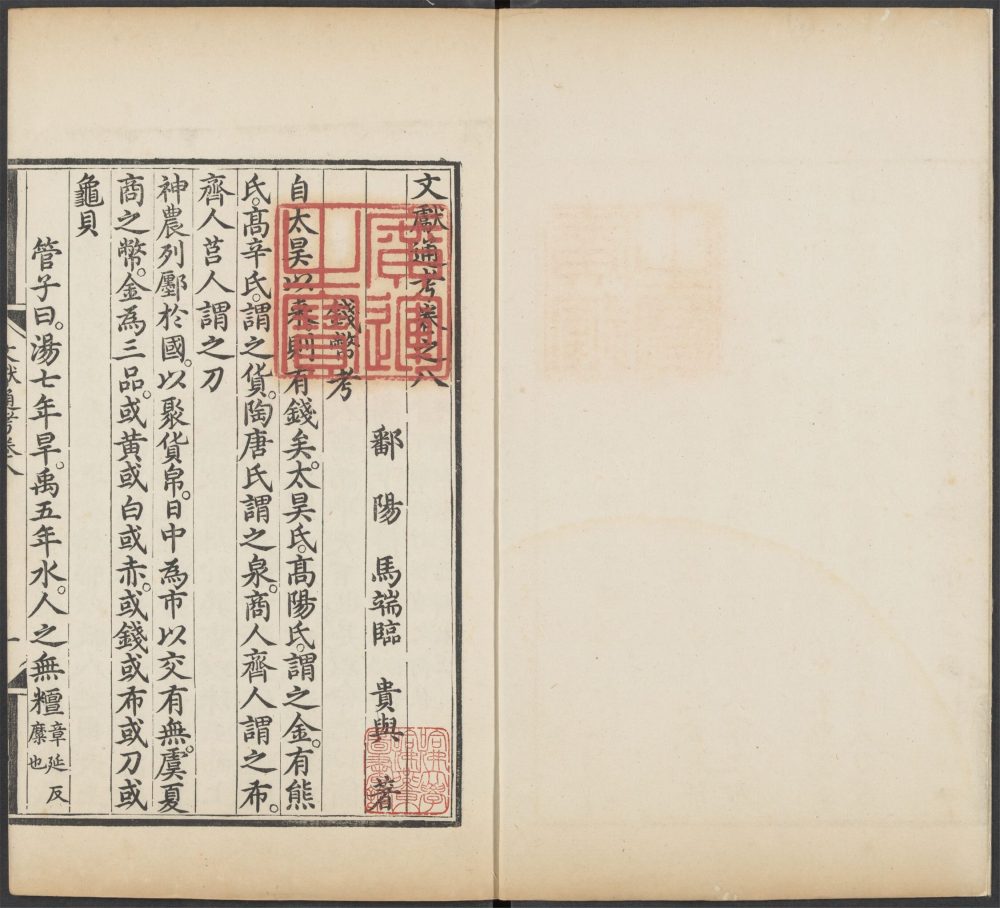 文獻通考卷之八
鄱陽馬端臨貴與著
錢幣考
自太昊以來則有錢矣。太昊氏。高陽氏。謂之金。有熊
氏。高辛氏。謂之貨。陶唐氏謂之泉。商人齊人謂之布。
齊人莒人謂之刀
神農列鄽於國。以聚貨帛。日中為市以交有無。虞夏
商之幣。金為三品。或黃或白或赤。或錢或布或刀或
龜貝
管子曰。湯七年旱。禹五年水。人之無𥼷章延反糜也
文獻通考卷八
一
廣運之寶
哈佛大學哈佛燕京圖書館